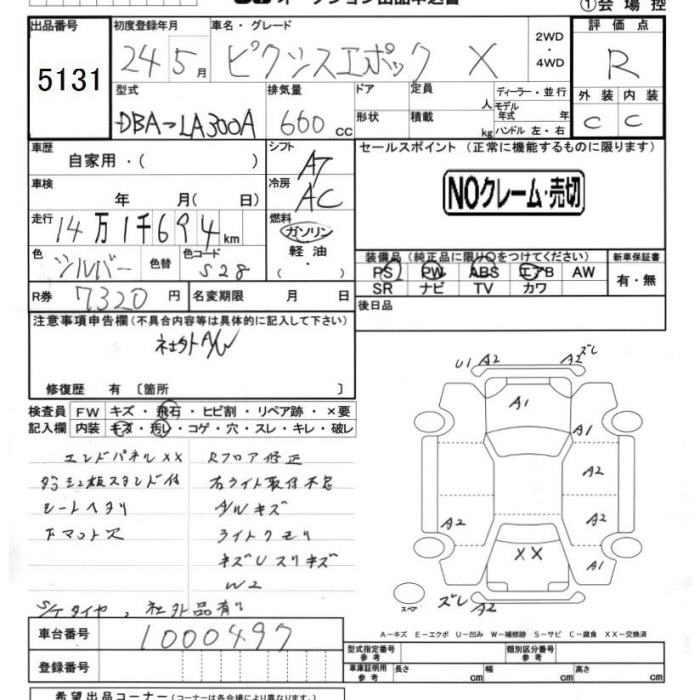 オークション出品申込書
①会場控
出品番号 5131
初度登録年月 24年5月
車名・グレード ピクシスエポック X
2WD・4WD
評価点 R
型式 DBA-LA300A
排気量 660cc
ドア 形状
定員 人
積載 kg
ディーラー・並行
モデル年式 年
ハンドル 左・右
外装 C 内装 C
車歴 自家用・( )
シフト AT
セールスポイント (正常に機能するものに限ります)
NOクレーム・売切
車検 年 月( 日)
冷房 AC
走行 14万1千694km
燃料 ガソリン・軽油・( )
色 シルバー 色替 色コード S28
装備品(純正品に限り○をつけてください) 新車保証書
PS PW ABS エアB AW 有・無
SR ナビ TV カワ
R券 7320円 名変期限 月 日
後日品
注意事項申告欄(不具合内容等は具体的に記入して下さい)
社外A/W
修復歴 有 〔箇所 〕
検査員記入欄 FW キズ・飛石・ヒビ割・リペア跡・×要
内装 キズ・汚レ・コゲ・穴・スレ・キレ・破レ
エンドパネルXX Rフロア修正
右ライト取付不良
シートヘタリ A/Wキズ
Fマット欠 ライトクモリ
キズUスリキズ
W2
S/Tタイヤ、社外品有り
U1 A2 A2 ズレ
A1
A1
A2
A2 A2
XX A1
スペア ズレ A2
A-キズ E-エクボ U-凹み W-補修跡 S-サビ C-腐食 XX-交換済
車台番号 1000497
登録番号
型式指定番号 参考 類別区分番号 参考
車庫証明用 参考 長さ cm 幅 cm 高さ cm
希望出品コーナー(コーナーは各会場により異なります)